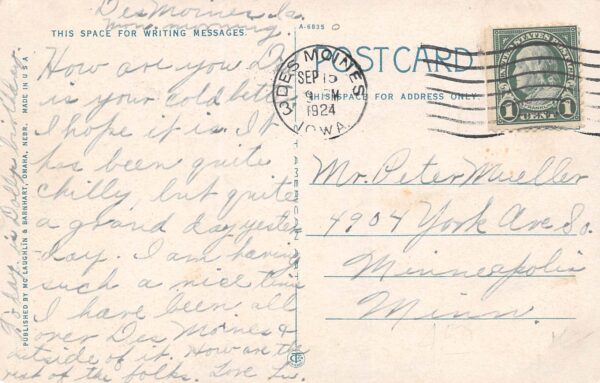 Des Moines Ia.
Mon. morning.
THIS SPACE FOR WRITING MESSAGES.
How are you
is your cold
I hope it is. It
has been quite
chilly but quite
a grand day yester
day. I am having
such a nice time
I have been all
over Des Moines &
outside of it. How are the
rest of the folks. Love
Today is
PUBLISHED BY MC LAUGHLIN & BARNHART, OMAHA, NEBR. MADE IN U S A
A-6835
POSTCARD
THIS SPACE FOR ADDRESS ONLY
DES MOINES
SEP 15
9 M
1924
IOWA
3
UNITED STATES POSTAGE
1 CENT 1
Mr. Peter Mueller
4904 York Ave So.
Minneapolis
Minn.